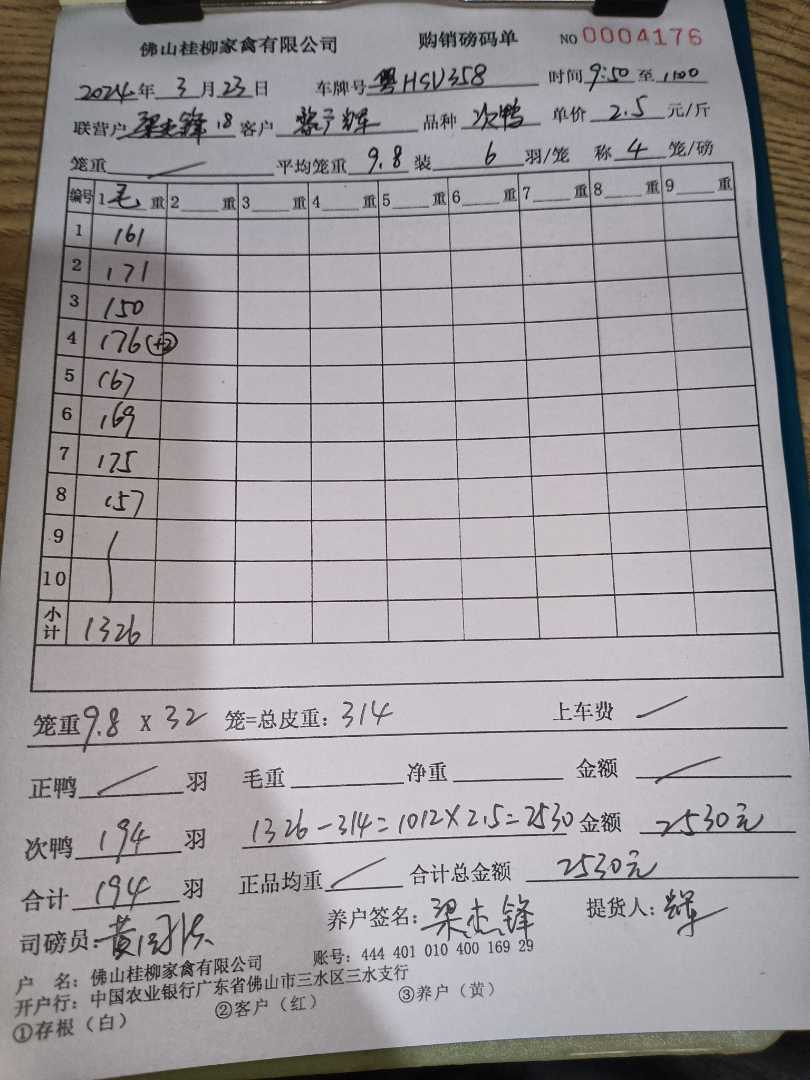 佛山桂柳家禽有限公司 购销磅码单 NO 0004176
2024年 3月23日 车牌号 粤HSV358 时间 9:50 至 1100
联营户 梁杰锋 18 客户 黎广辉 品种 次鸭 单价 2.5 元/斤
笼重 平均笼重 9.8 装 6 羽/笼 称 4 笼/磅
编号 1 毛 重 2 重 3 重 4 重 5 重 6 重 7 重 8 重 9 重
1 161
2 171
3 150
4 176 (+2)
5 167
6 169
7 175
8 157
9
10
小计 1326
笼重 9.8 X 32 笼=总皮重: 314 上车费
正鸭 羽 毛重 净重 金额
次鸭 194 羽 1326-314=1012×2.5=2530 金额 2530元
合计 194 羽 正品均重 合计总金额 2530元
司磅员: 黄 养户签名: 梁杰锋 提货人: 辉
户 名: 佛山桂柳家禽有限公司 账号: 444 401 010 400 169 29
开户行: 中国农业银行广东省佛山市三水区三水支行
①存根（白） ②客户（红） ③养户（黄）